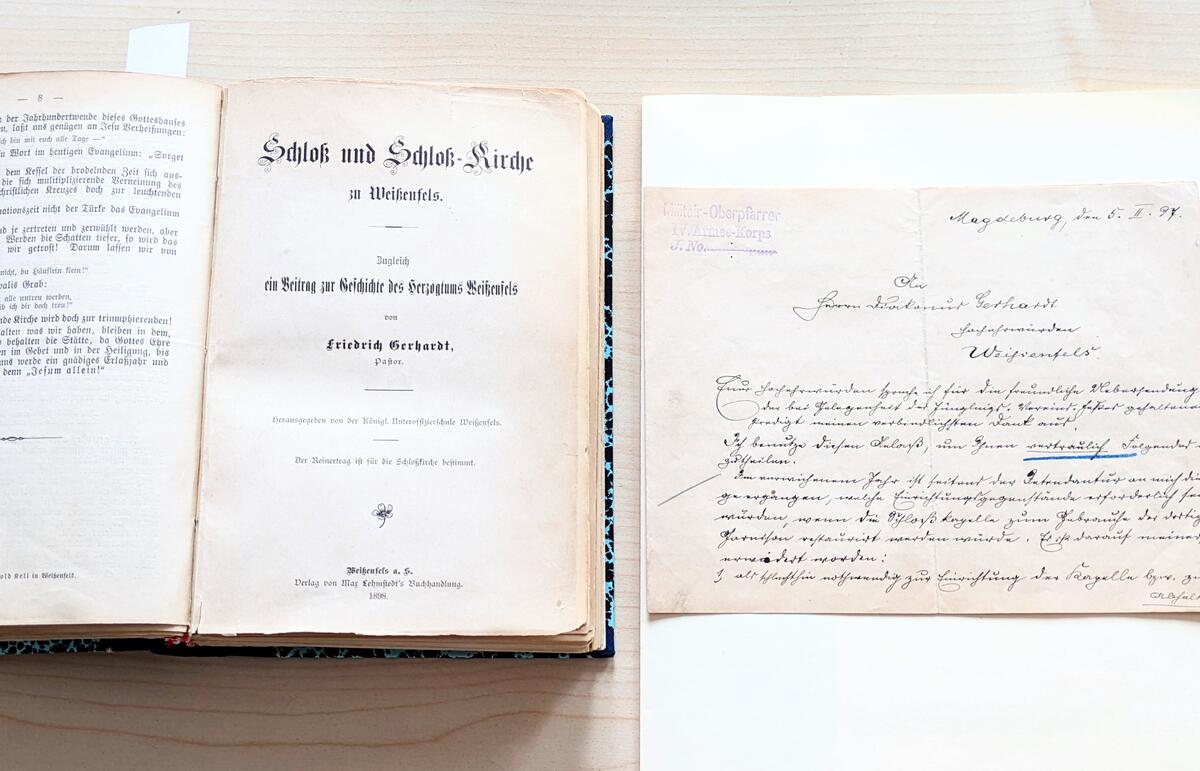 — 8 —
n der Jahrhundertwende dieses Gotteshauses
n, laßt uns genügen an Jesu Verheißungen:
ch bin mit euch alle Tage —"
u Wort im heutigen Evangelium: „Sorget
dem Kessel der brodelnden Zeit sich aus-
die sich multiplizierende Verneinung des
christlichen Kreuzes doch zur leuchtenden
mationszeit nicht der Türke das Evangelium
nd je zertreten und zerwühlt werden, aber
Werden die Schatten tiefer, so wird das
wir getrost! Darum lassen wir von
nicht, du Häuflein klein!"
valis Grab:
alle untreu werden,
ib ich dir doch treu!"
nde Kirche wird doch zur triumphierenden!
alten was wir haben, bleiben in dem,
o behalten die Stätte, da Gottes Ehre
en im Gebet und in der Heiligung, bis
uns werde ein gnädiges Erlaßjahr und
denn „Jesum allein!"
old Kell in Weißenfels.
Schloß und Schloß-Kirche
zu Weißenfels.
Zugleich
ein Beitrag zur Geschichte des Herzogtums Weißenfels
von
Friedrich Gerhardt,
Pastor.
Herausgegeben von der Königl. Unteroffizierschule Weißenfels.
Der Reinertrag ist für die Schloßkirche bestimmt.
Weißenfels a. S.
Verlag von Max Lehmstedt's Buchhandlung.
1898.
Militair-Oberpfarrer
IV. Armee-Korps
J. No.
Magdeburg, den 5. II. 97.
An
Herrn Diakonus Gerhardt
Hochehrwürden
Weißenfels.
Euer Hochehrwürden spreche ich für die freundliche Uebersendung
der bei Gelegenheit des Jünglings-Vereins-Festes gehaltene
Predigt meinen verbindlichsten Dank aus.
Ich benutze diesen Anlaß, um Ihnen vertraulich Folgendes
zutheilen.
Im verwichenen Jahr ist seitens der Intendantur an mich die
ge ergangen, welche Einrichtungsgegenstände erforderlich se
würden, wenn die Schloßkapelle zum Gebrauche der dortig
Garnison restaurirt werden würde. Es ist darauf meiner
erwidert worden:
als schlechthin nothwendig zur Einrichtung der Kapelle bezw. zu